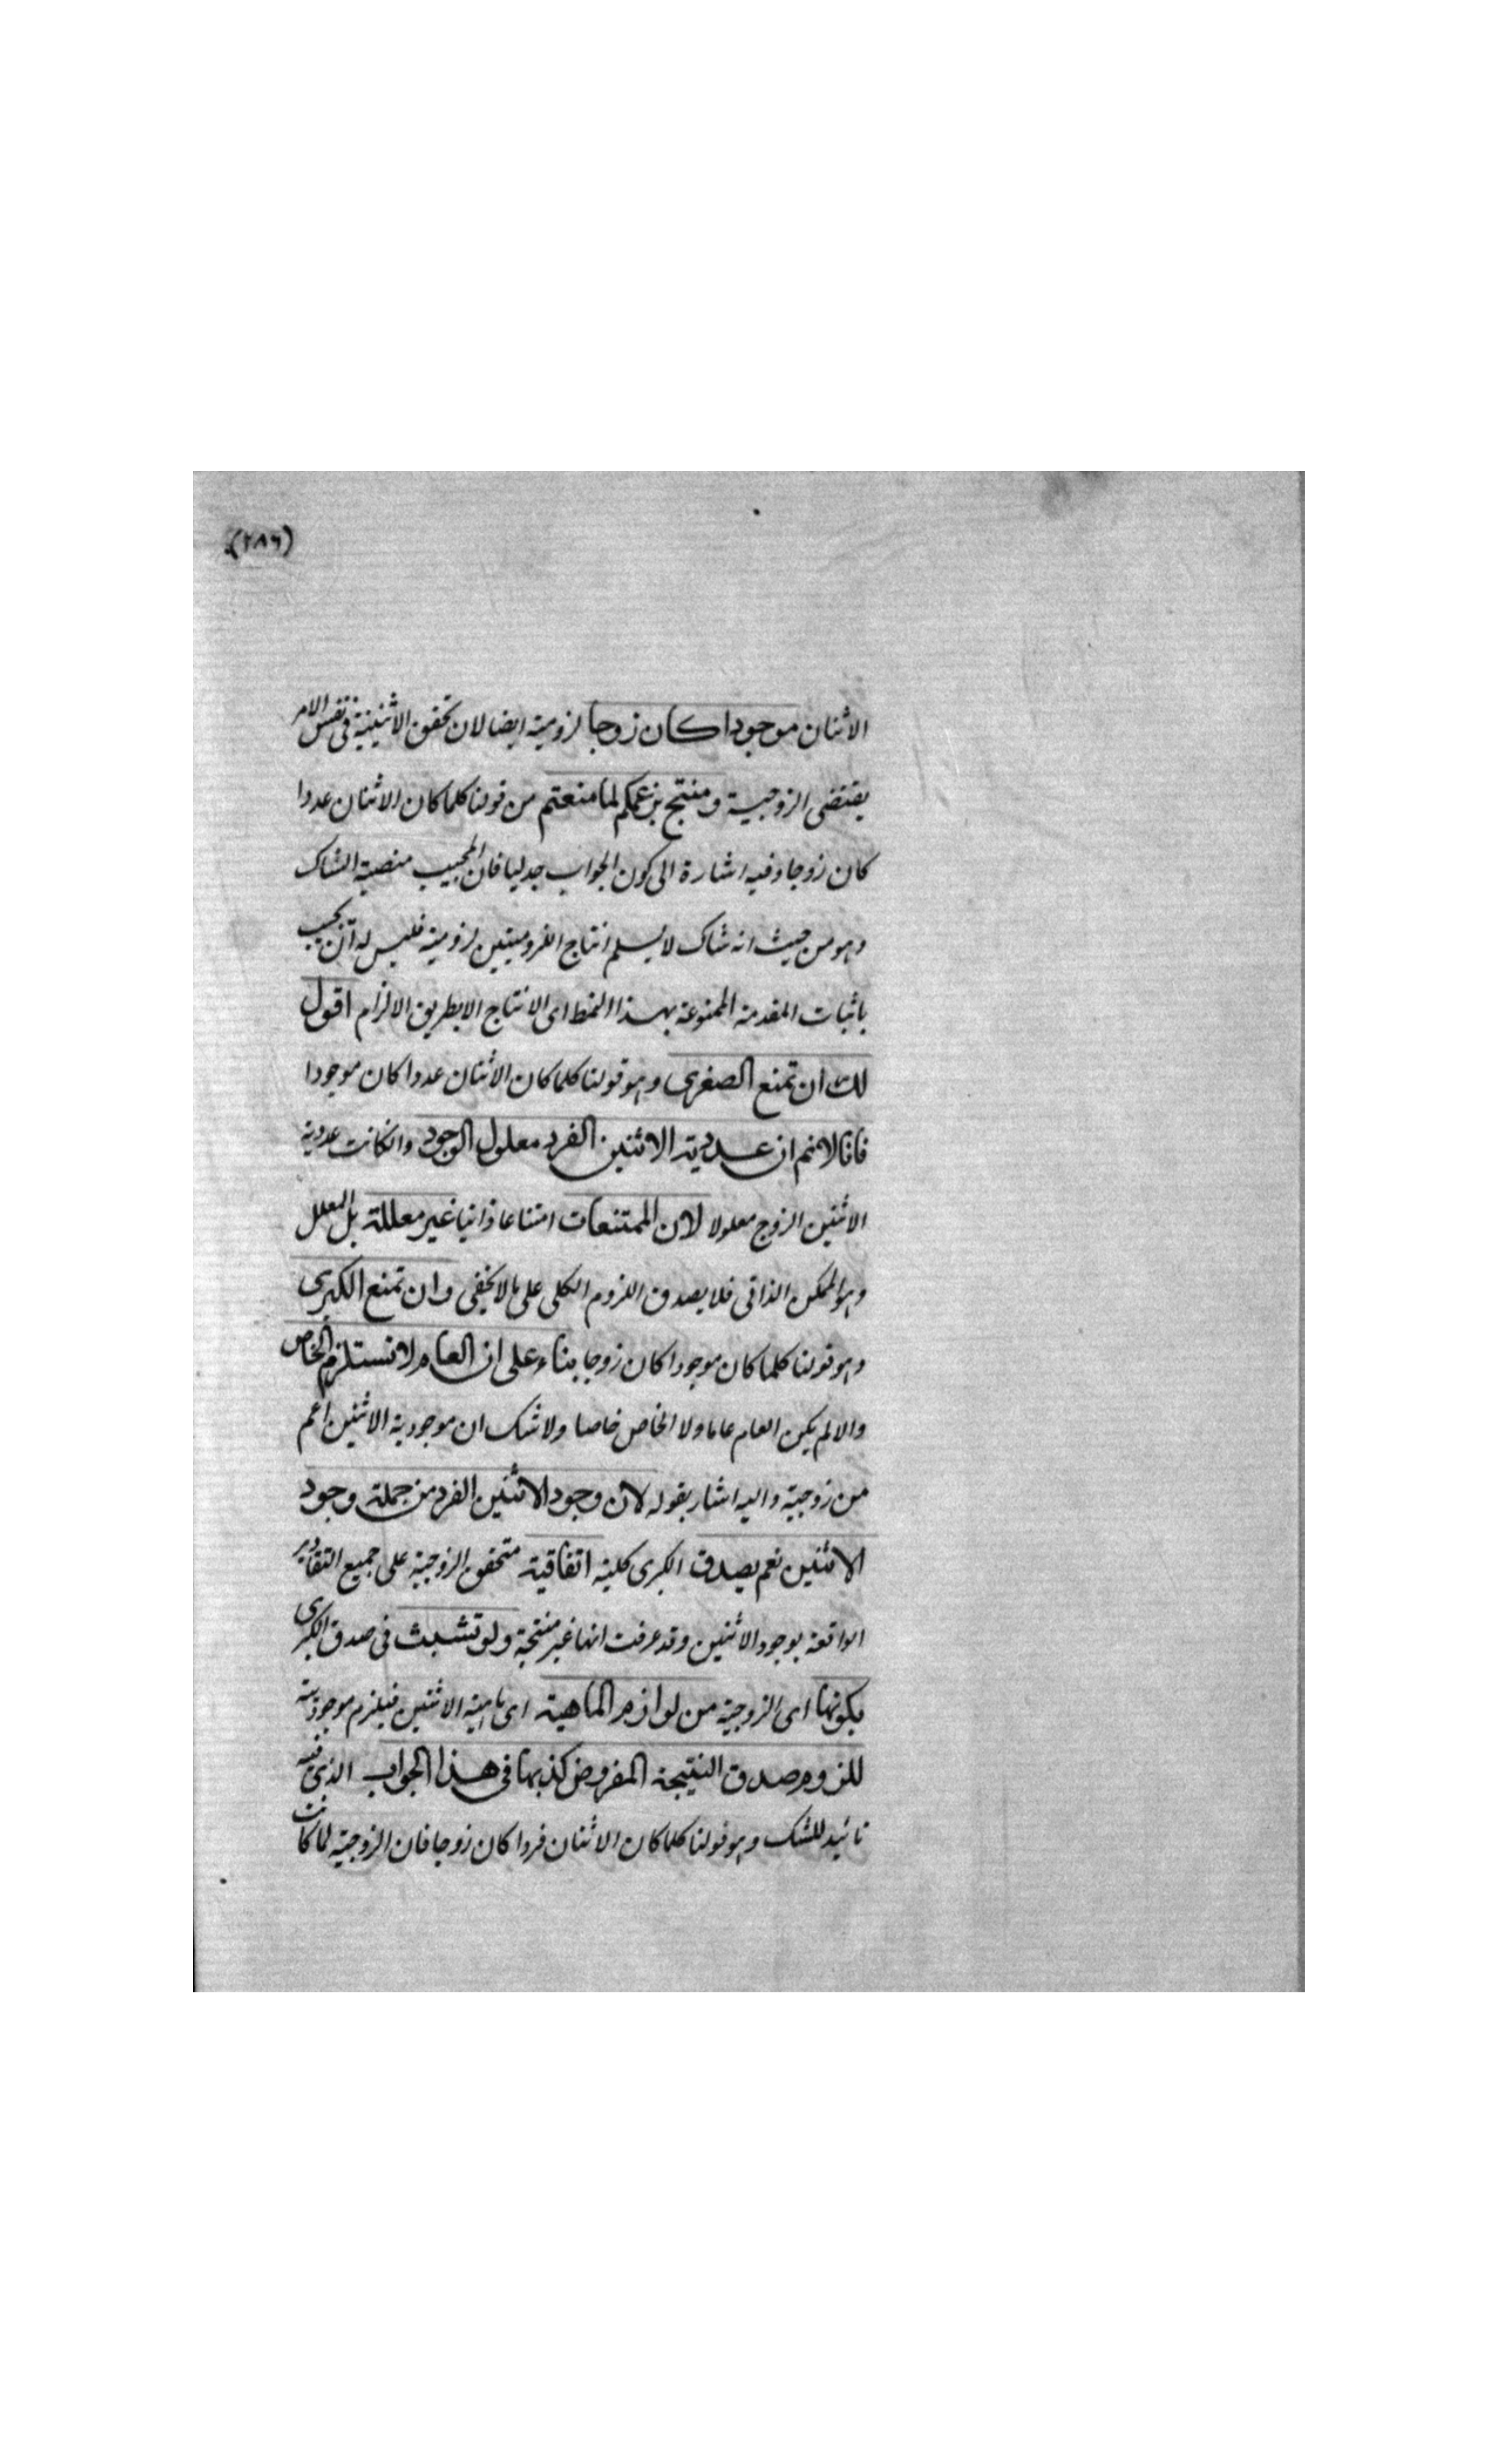 (٢٨٦)
الاثنان موجودا كان زوجا لزومية ايضا لان تحقق الاثنينية فى نفس الامر
يقتضى الزوجية ومنتج بزعمكم لما منعتم من قولنا كلما كان الاثنان عددا
كان زوجا وفيه اشارة الى كون الجواب جدليا فان المجيب منصبة الشاك
وهو من حيث انه شاك لا يسلم انتاج اللزوميتين لزومية فليس له ان يجيب
باثبات المقدمة الممنوعة بهذا النمط اى الانتاج الا بطريق الالزام اقول
لك ان تمنع الصغرى وهو قولنا كلما كان الاثنان عددا كان موجودا
فانا لا نم ان عددية الاثنين الفرد معلول الوجود وانكانت عددية
الاثنين الزوج معلولا لان الممتنعات امتناعا ذاتيا غير معللة بل المعلل
وهو الممكن الذاتى فلا يصدق اللزوم الكلى على ما لا يخفى وان تمنع الكبرى
وهو قولنا كلما كان موجودا كان زوجا بناء على ان العام لا تستلزم الخاص
والا لم يكن العام عاما ولا الخاص خاصا ولا شك ان موجودية الاثنين اعم
من زوجية واليه اشار بقوله لان وجود الاثنين الفرد من جملة وجود
الاثنين نعم يصدق الكبرى كلية اتفاقية متحقق الزوجية على جميع التقادير
الواقعة بوجود الاثنين وقد عرفت انها غير منتجة ولو تشبث فى صدق الكبرى
بكونها اى الزوجية من لوازم الماهية اى ماهية الاثنين فيلزم موجودية
للزوم صدق النتيجة المفروض كذبها فى هذا الجواب الذى فيه
تائيد للشك وهو قولنا كلما كان الاثنان فردا كان زوجا فان الزوجية لما كانت